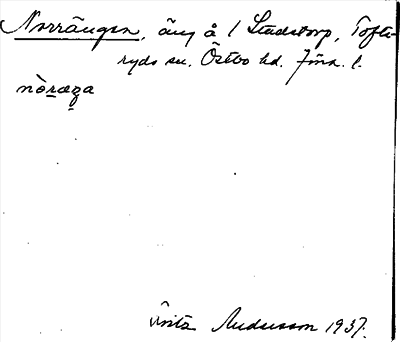 Norrängen, äng å 1 Stadstorp, Tofte-
ryds sn. Östbo hd. Jönk. l.
nòræŋa
Fritz Andersson 1937.